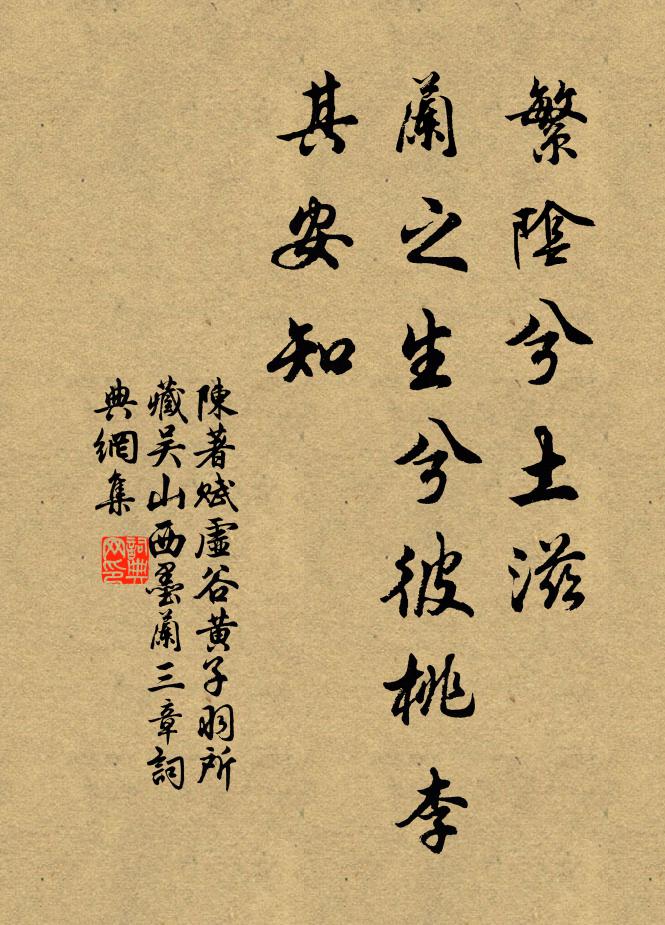 繁陰兮土滋
蘭之生兮彼桃李
其安知
陳著賦虛谷黃子羽所
藏吴山西墨蘭三章詞
典網集
詞典
网印